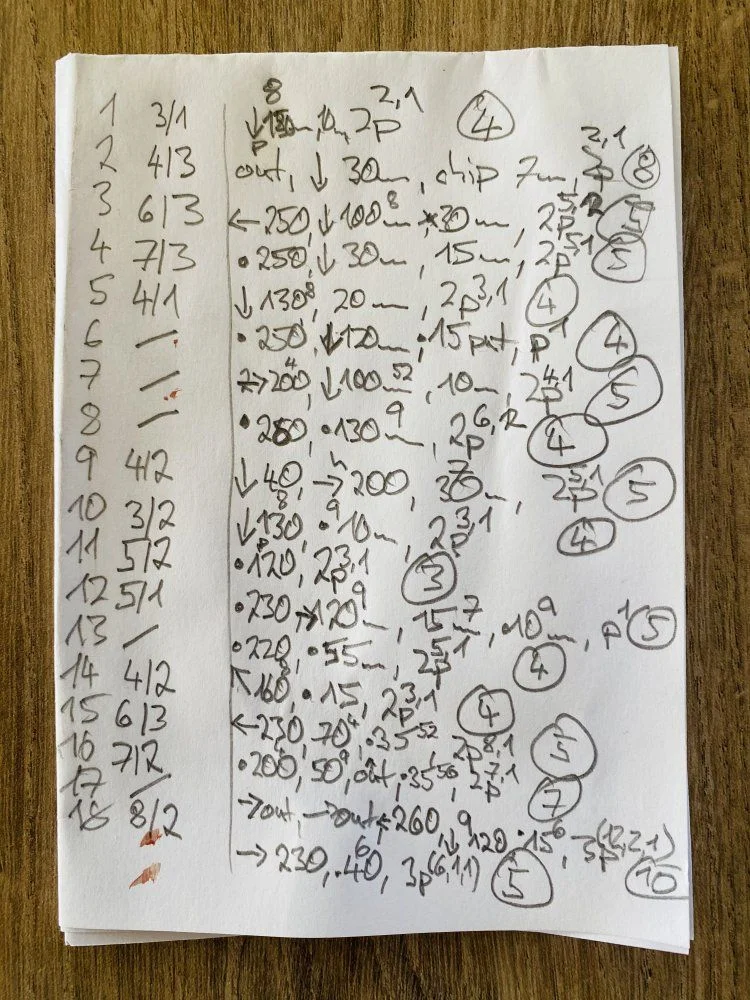 8
1 3/1 ↓130m, 10m, 2p 2,1 4
p
2 4/3 out, ↓ 30m, chip 7m, 2,1 8
3 6/3 ←250, ↓100m 8, 30m, 2p 5,2 5
4 7/3 •250, ↓30m, 15m, 2p 5,1 5
5 4/1 ↓130 8, 20m, 2p 3,1 4
6 — •250, ↓120m, •15 put, p 1 4
7 — →200 4, ↓100m 52, 10m, 2p 4,1 5
8 — •260, •130m 9, 2p 6,2 4
9 4/2 ↓40, →200, 30m 7, 2p 5,1 5
10 3/2 ↓130 8, •10m 9, 2p 3,1 4
11 5/2 •120 p, 2p 3,1 3
12 5/1 •230, →120m 9, 15m 7, •10m 9, p 1 5
13 — •220, •55m, 2p 5,1 4
14 4/2 ↖160 8, •15, 2p 3,1 4
15 6/3 ←230, 70 4, •35 52, 2p 8,1 5
16 7/2 •200, 50 9, out, •35 56, 2p 7,1 7
17 — →out, →out, 260, ↓120 9, •15 6, 3p (12,2,1) 10
18 8/2 →230, •40 6, 3p (6,1,1) 5